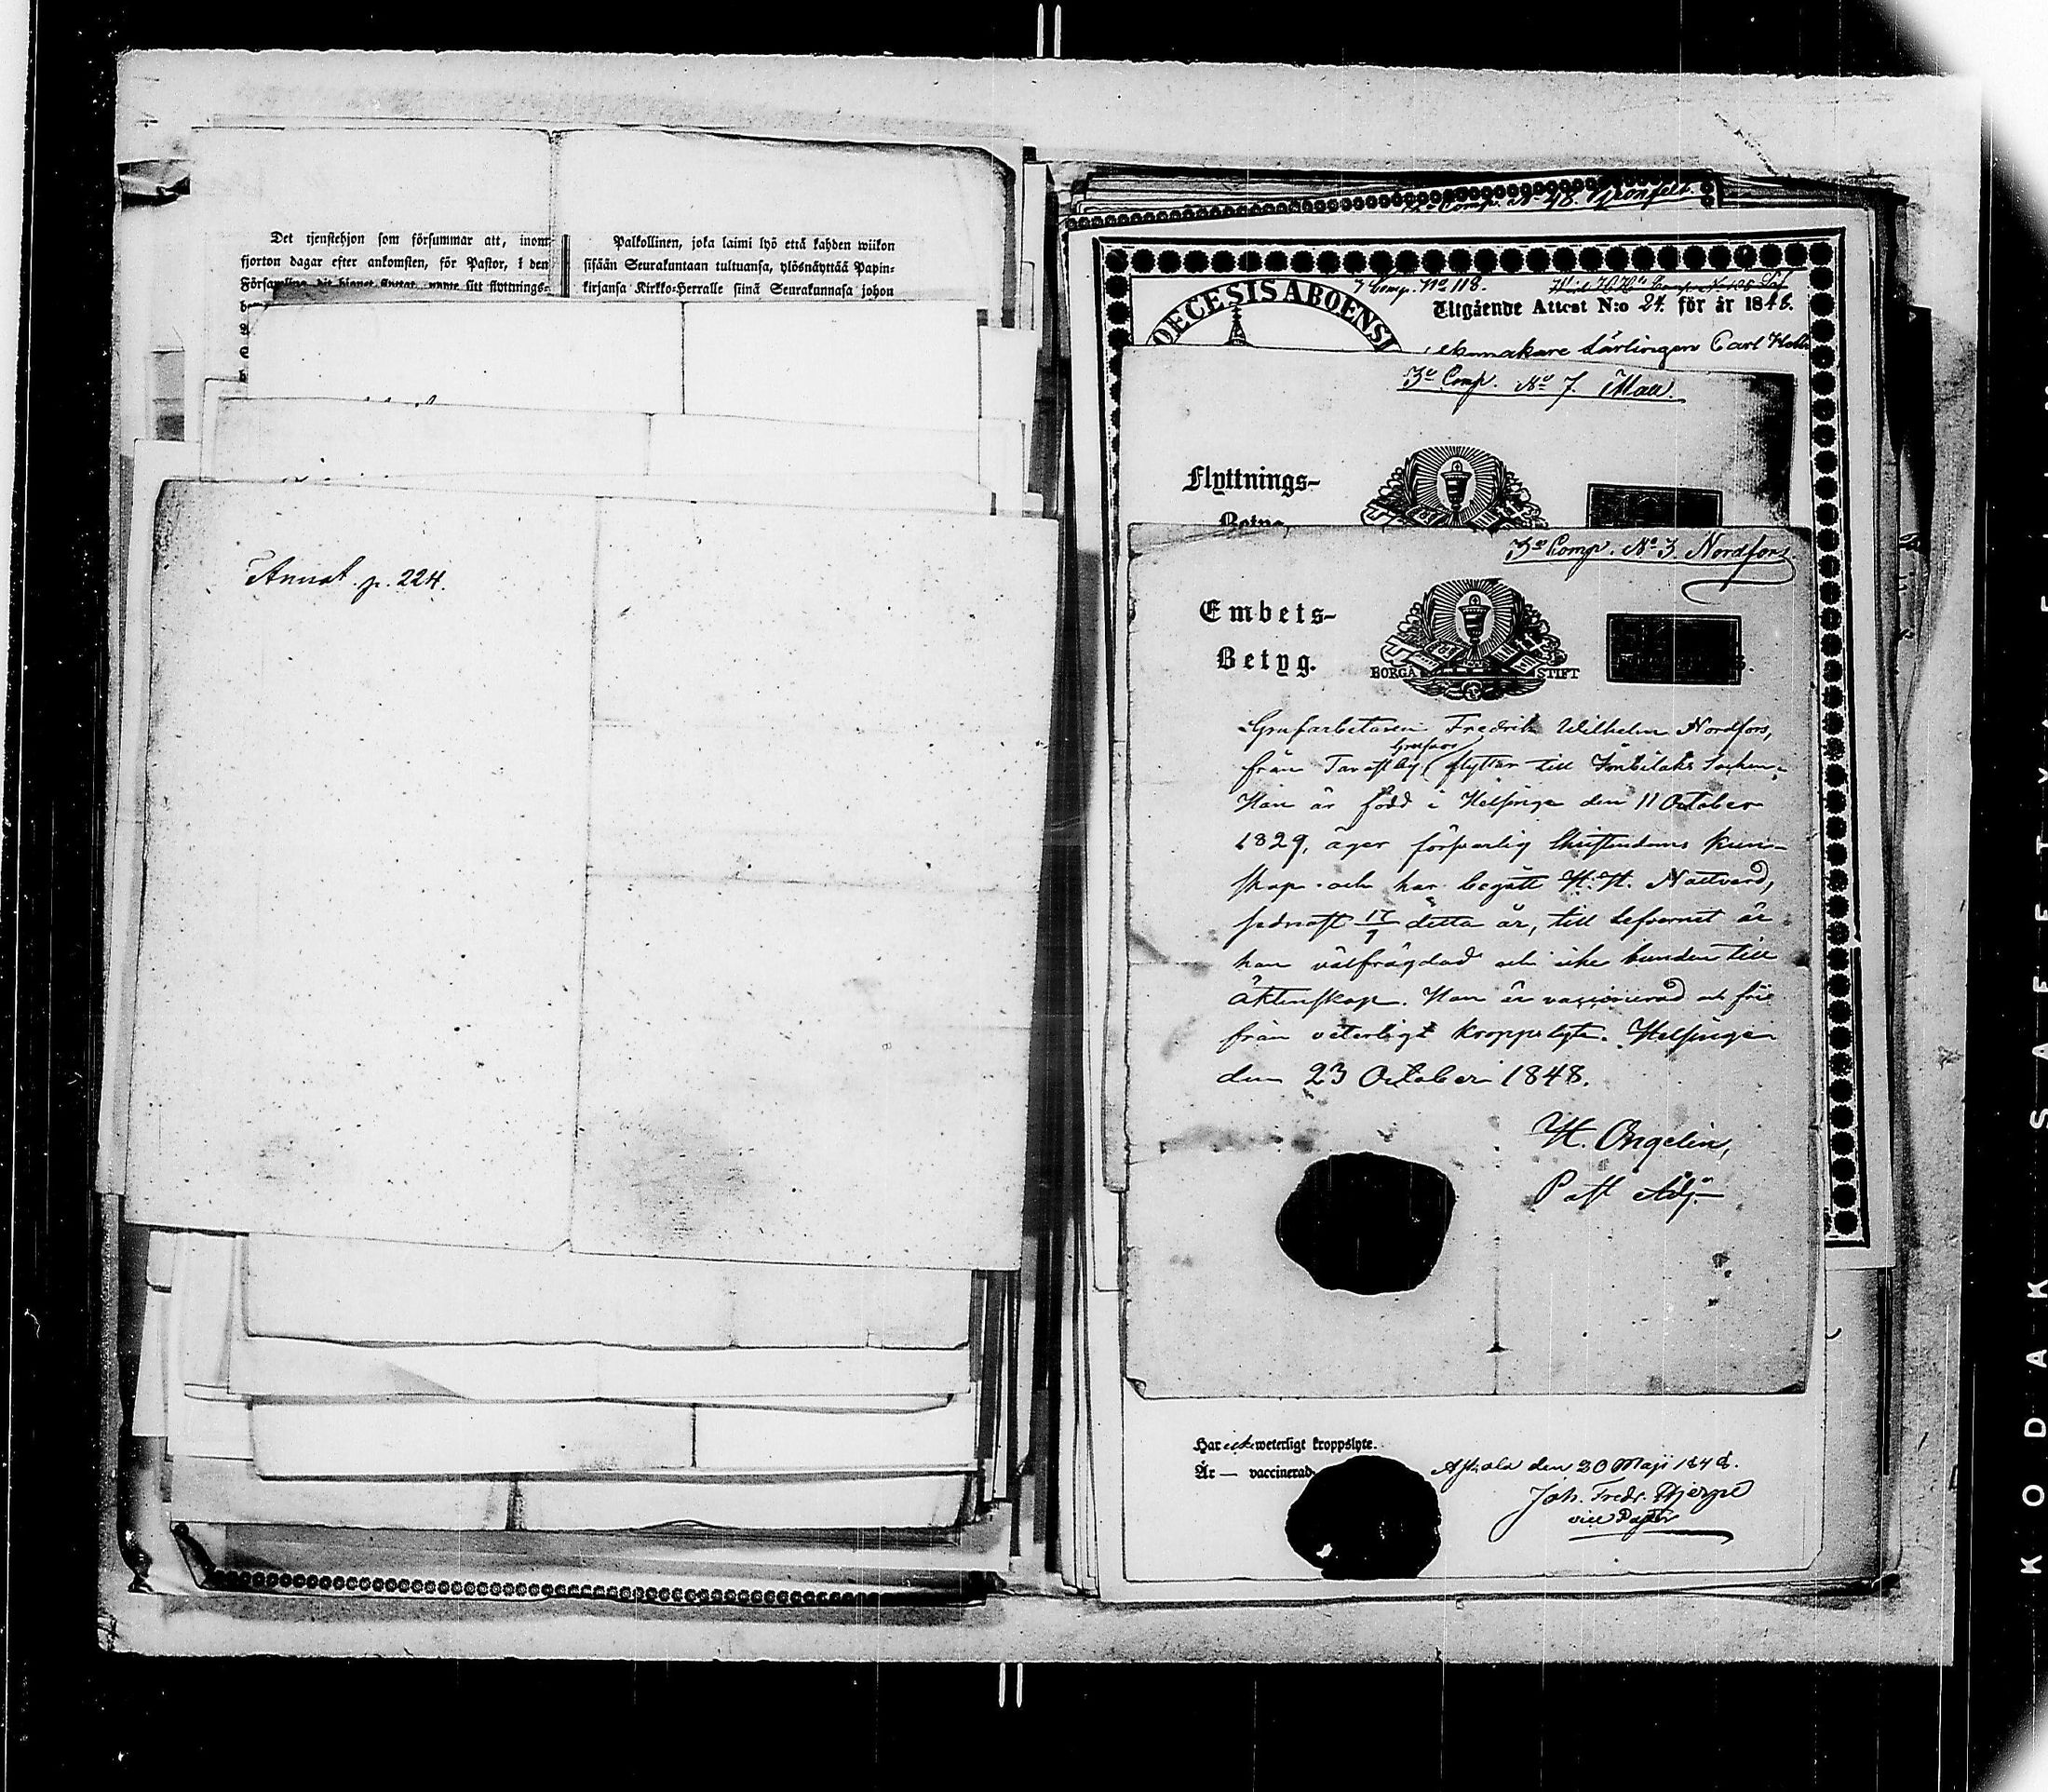 Det tjenstehjon som försummar att, inom
fjorton dagar efter ankomsten, för Pastor, i den
Palkollinen, joka laimi lyö että kahden wiikon
sisään Seurakuntaan tultuansa, ylösnäyttää Papin-
kirjansa Kirkko-Herralle siinä Seurakunnasa johon
Annot. p. 224.
7 Comp. No 118.
Utgående Attest N:o 24. för år 1848.
lärlingen Carl
3e Comp. No 7. Maa.
Flyttnings-
Betyg.
3e Comp. No 3 Nordfors.
Embets-
Betyg.
BORGÅ STIFT
Grufarbetaren Fredrik Wilhelm Nordfors,
från Tavastby flyttar till Socken.
Han är född i Helsinge den 11 October
1829, äger försvarlig Christendoms kun-
skap och har begått H. H. Nattvard,
sednast 17/9 detta år, till lefvernet är
han välfrägdad och icke bunden till
äktenskap. Han är vaccinerad och fri
från veterligt kroppslyte. Helsinge
den 23 October 1848.
H. Ongelin,
Past Adj.
Har icke weterligt kroppslyte.
Är — vaccinerad
Askola den 20 Maji 1848.
Joh. Fredr.
vice Pastor
KODAK SAFETY FILM